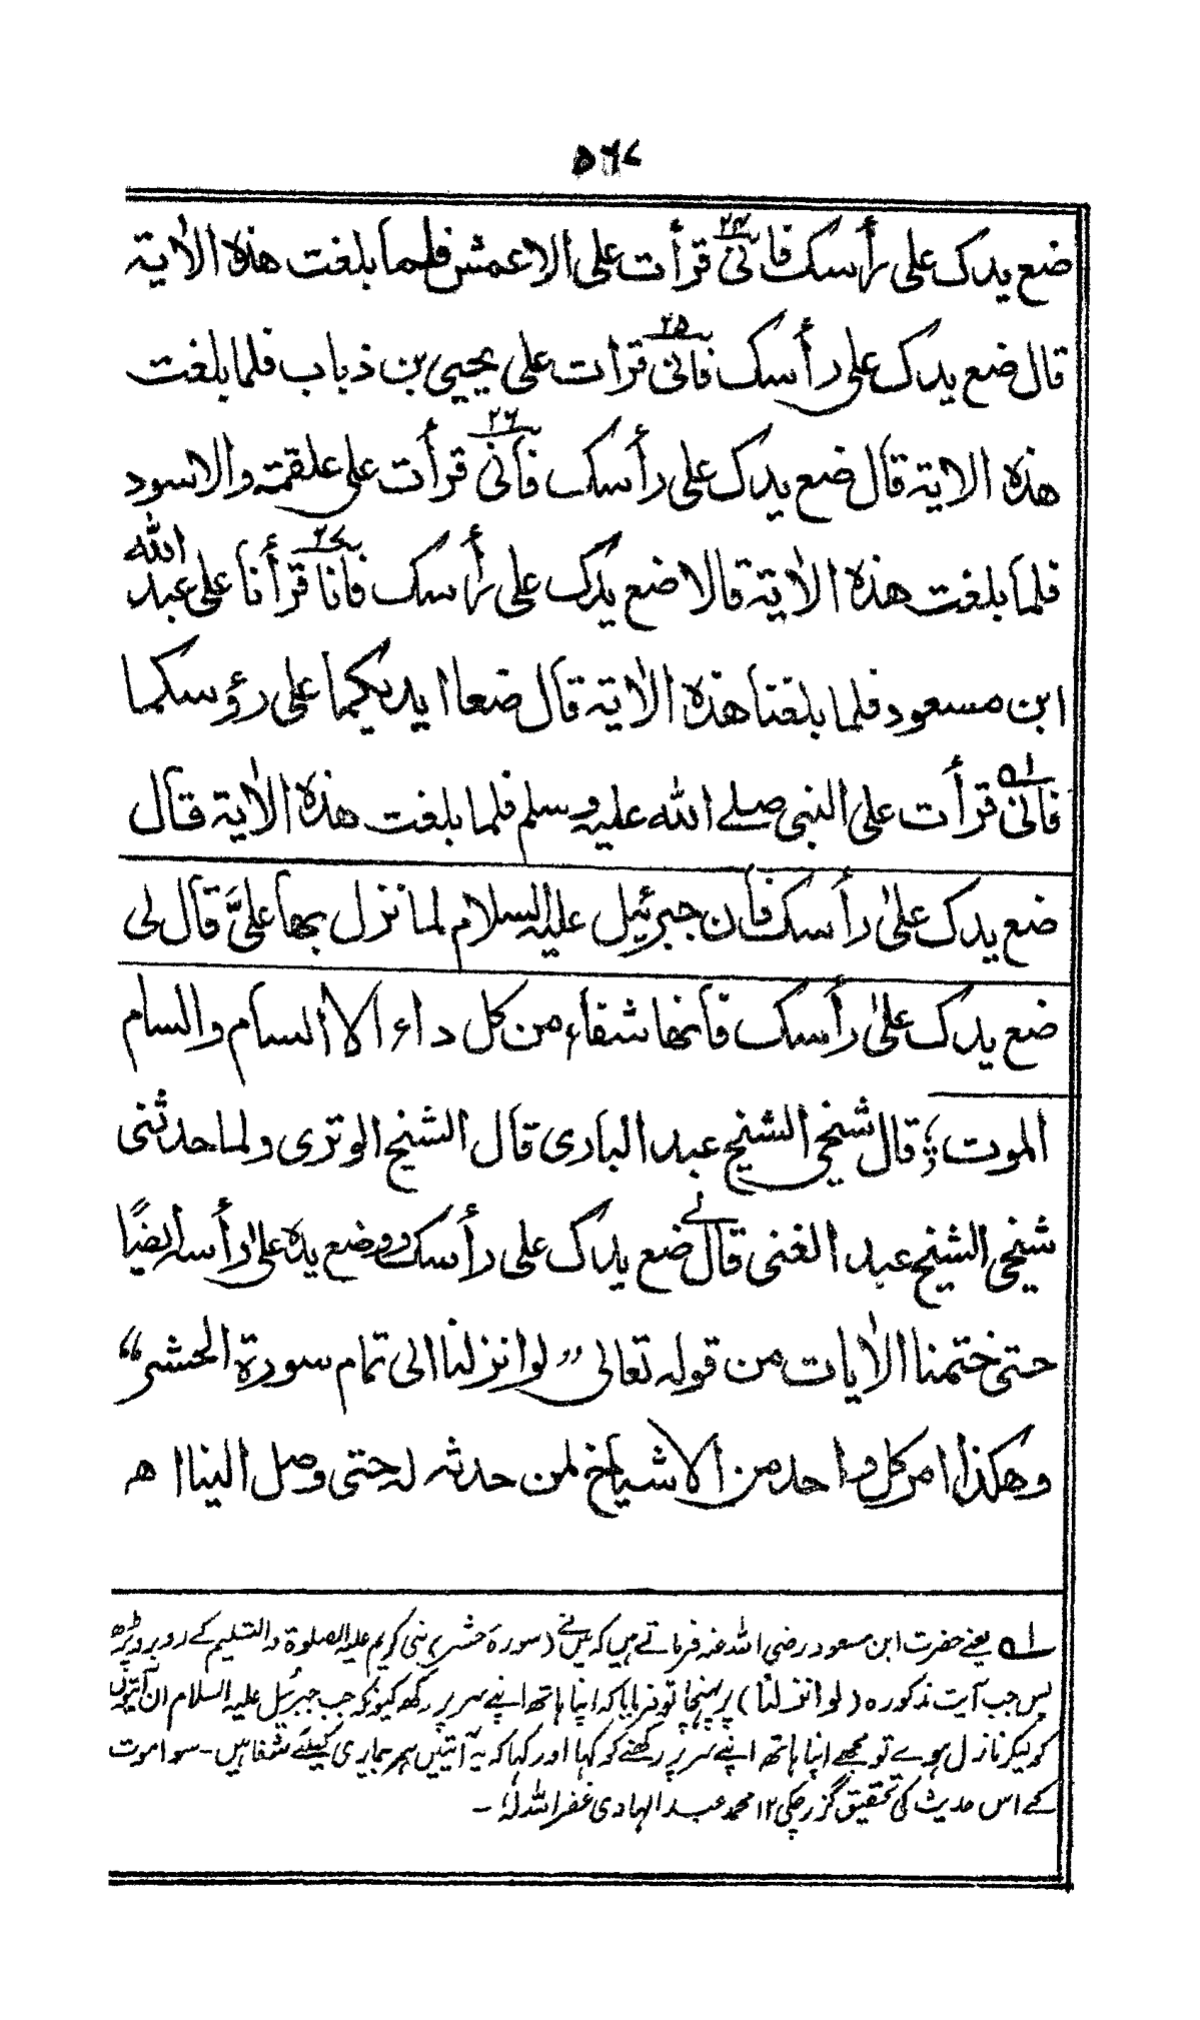 ۵۶۷
ضع يدك على رأسك فانى ۲۴ قرأت على الاعمش فلما بلغت هذه الاٰية
قال ضع يدك على رأسك فانى ۲۵ قرأت على يحيي بن ذباب فلما بلغت
هذه الاية قال ضع يدك على رأسك فانى ۲۶ قرأت على علقمة والاسود
فلما بلغت هذه الاٰية قالا ضع يدك على رأسك فانا ۲۷ قرأنا على عبد الله
ابن مسعود فلما بلغنا هذه الاٰية قال ضعا ايديكما على رؤسكما
فانى ۱ قرأت على النبى صلے الله عليه وسلم فلما بلغت هذه الاٰية قال
ضع يدك علىٰ رأسك فان جبرئيل عليه السلام لما نزل بها علىَّ قال لى
ضع يدك علىٰ رأسك فانها شفاء من كل داء الا السام والسام
الموت ؛ قال شيخى الشيخ عبد البارى قال الشيخ الوترى ولما حدثنى
شيخى الشيخ عبد الغنى قال لے ضع يدك على رأسك ووضع يده على رأسه ايضًا
حتى ختمنا الاٰيات من قوله تعالى ”لو انزلنا الى تمام سورة الحشر“
وهكذا امر كل واحد من الاشياخ لمن حدثه له حتى وصل الينا اه
۱ یعنے حضرت ابن مسعود رضی اللہ عنہ فرماتے ہیں کہ میں نے (سورۂ حشر) نبی کریم علیہ الصلوۃ والتسلیم کے روبرو پڑھی
پس جب آیت مذکورہ (لو انزلنا) پر پہنچا تو فرمایا کہ اپنا ہاتھ اپنے سر پر رکھ کیونکہ جب جبرئیل علیہ السلام ان آیتوں
کو لیکر نازل ہوے تو مجھے اپنا ہاتھ اپنے سر پر رکھنے کو کہا اور کہا کہ یہ آیتیں ہر بیماری کیلئے شفا ہیں - سوا موت
کے اس حدیث کی تحقیق گزر چکی ۱۲ محمد عبد الہادی غفر اللہ لہٗ -